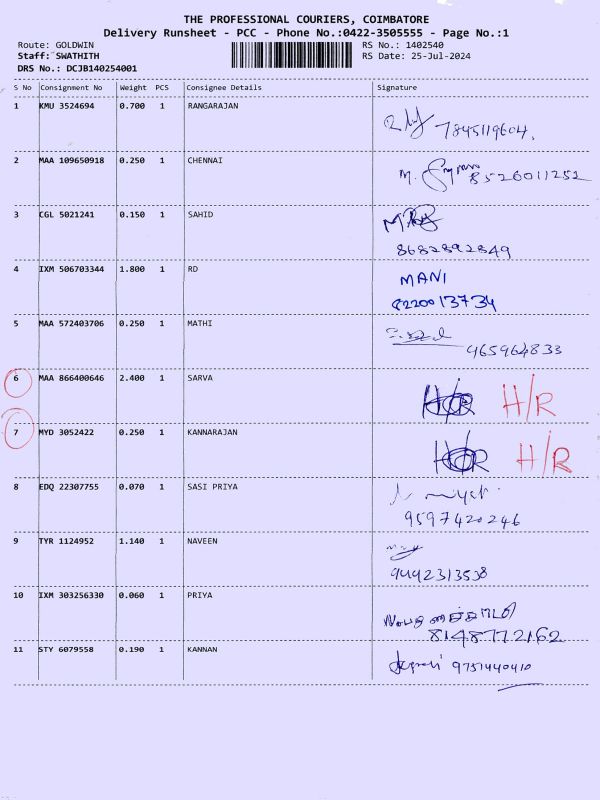 THE PROFESSIONAL COURIERS, COIMBATORE
Delivery Runsheet - PCC - Phone No.:0422-3505555 - Page No.:1
Route: GOLDWIN
Staff: SWATHITH
DRS No.: DCJB140254001
RS No.: 1402540
RS Date: 25-Jul-2024
S No Consignment No Weight PCS Consignee Details Signature
1 KMU 3524694 0.700 1 RANGARAJAN
7845119604.
2 MAA 109650918 0.250 1 CHENNAI
M. 8526011252
3 CGL 5021241 0.150 1 SAHID
8682892849
4 IXM 506703344 1.800 1 RD MANI
8220013734
5 MAA 572403706 0.250 1 MATHI
965964833
6 MAA 866400646 2.400 1 SARVA H/R
7 MYD 3052422 0.250 1 KANNARAJAN H/R
8 EDQ 22307755 0.070 1 SASI PRIYA
9597420246
9 TYR 1124952 1.140 1 NAVEEN
9442313538
10 IXM 303256330 0.060 1 PRIYA
8148772162
11 STY 6079558 0.190 1 KANNAN 9751440410